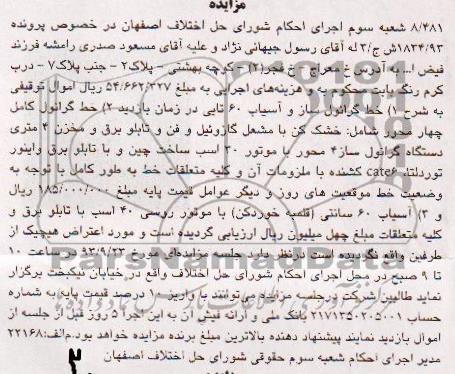 مزایده
۸/۴۸۱ شعبه سوم اجرای احکام شورای حل اختلاف اصفهان در خصوص پرونده
۱۸۳۴/۹۳ش ج/۳ له آقای رسول جیهانی نژاد و علیه آقای مسعود صدری رامشه فرزند
فیض ا... به آدرس خ معراج - خ فجر(۲) - کوچه بهشتی - پلاک۲ - جنب پلاک۷ - درب
کرم رنگ بابت محکوم به و هزینه‌های اجرایی به مبلغ ۵۴/۶۶۲/۳۲۷ ریال اموال توقیفی
به شرح ۱) خط گرانول ساز و آسیاب ۶۰ تایی در زمان بازدید ۲) خط گرانول کامل
چهار محور شامل: خشک کن با مشعل گازوئیل و فن و تابلو برق و مخزن ۴ متری
دستگاه گرانول ساز۴ محور با موتور ۳۰ اسب ساخت چین و با تابلو برق و اینور
توردلتا، cate6 کشنده با ملزومات آن و کلیه متعلقات خط به طور کامل با توجه به
وضعیت خط موقعیت های روز و دیگر عوامل قیمت پایه مبلغ ۱۸۵/۰۰۰/۰۰۰ ریال
و ۳) آسیاب ۶۰ سانتی (قلمیه خوردکن) با موتور روسی ۴۰ اسب با تابلو برق و
کلیه متعلقات مبلغ چهل میلیون ریال ارزیابی گردیده است و مورد اعتراض هیچیک از
طرفین واقع نگردیده است درنظر دارد جلسه مزایده‌ای مورخ ۹۳/۹/۲۳ ساعت ۱۰
تا ۹ صبح در محل اجرای احکام شورای حل اختلاف واقع در خیابان نیکبخت برگزار
نماید طالبین شرکت درجلسه مزایده می‌توانند با واریز ۱۰ درصد قیمت پایه به شماره
حساب ۲۱۷۱۳۵۰۲۰۵۰۰۱ بانک ملی و ارائه فیش آن به این اجرا ۵ روز قبل از جلسه از
اموال بازدید نمایند پیشنهاد دهنده بالاترین مبلغ برنده مزایده خواهد بود.م‌الف:۲۲۱۶۸
مدیر اجرای احکام شعبه سوم حقوقی شورای حل اختلاف اصفهان
ParsNamadData